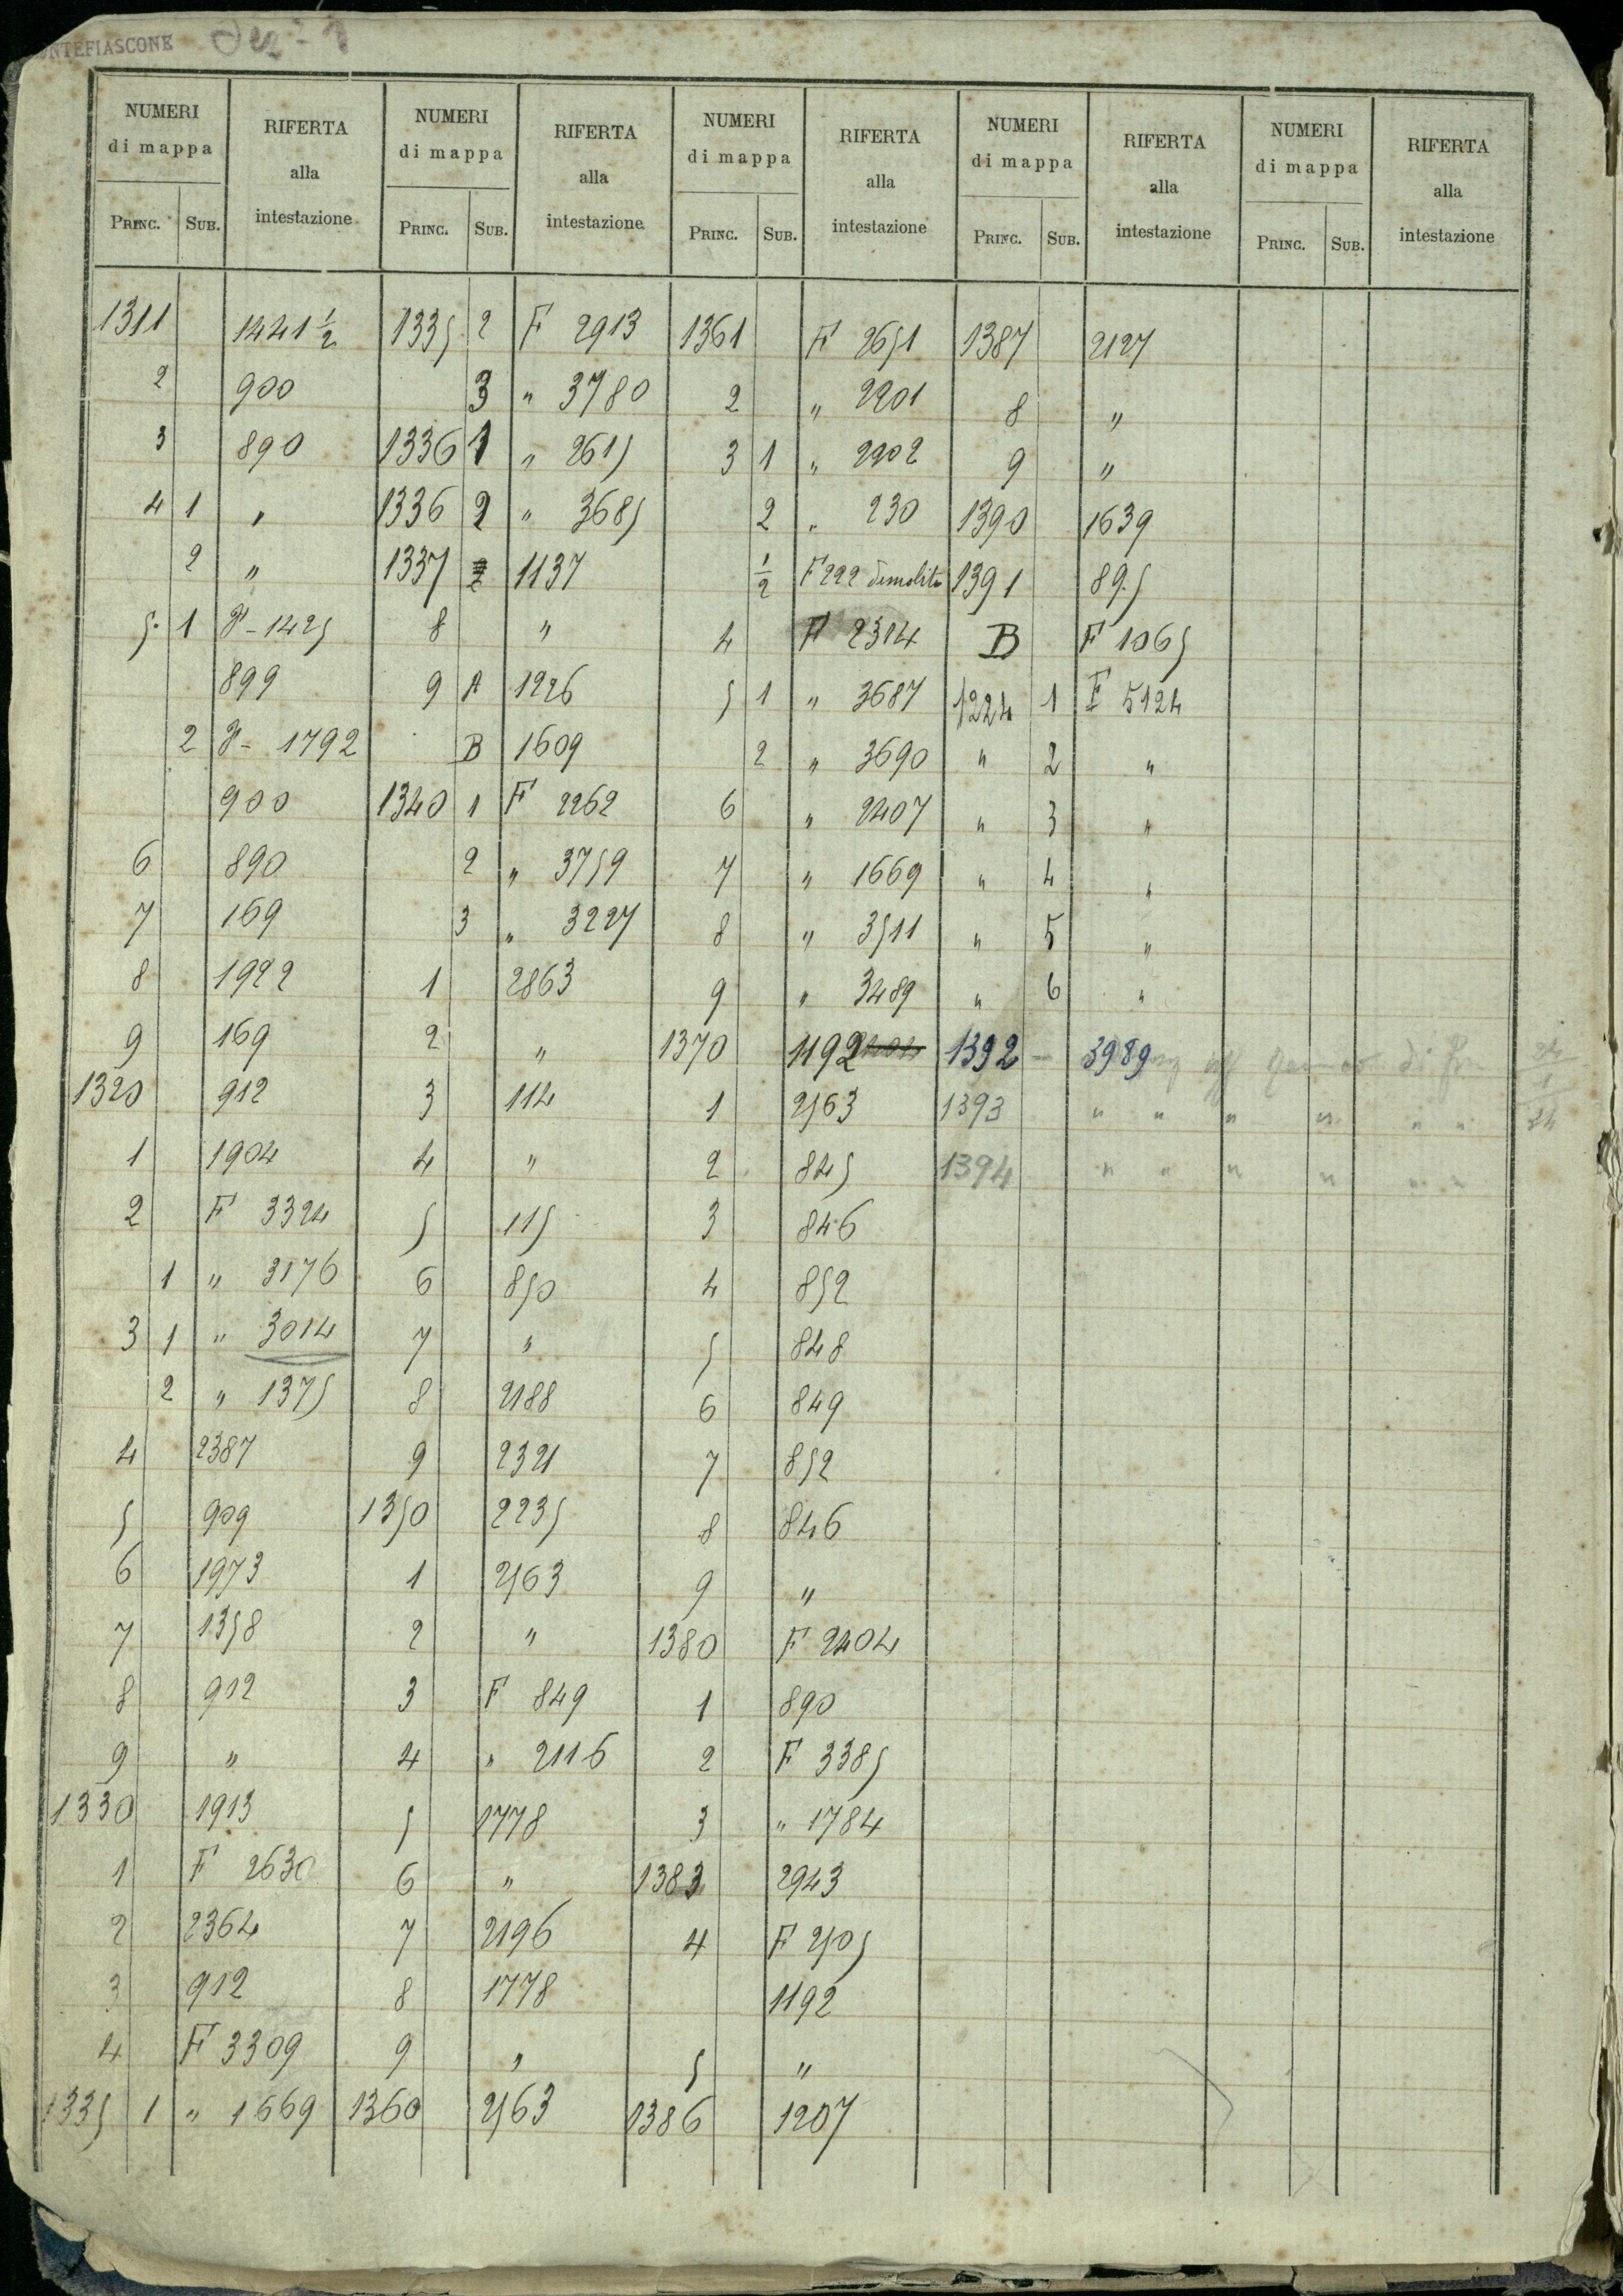 MONTEFIASCONE
NUMERI di mappa | RIFERTA alla intestazione | NUMERI di mappa | RIFERTA alla intestazione | NUMERI di mappa | RIFERTA alla intestazione | NUMERI di mappa | RIFERTA alla intestazione | NUMERI di mappa | RIFERTA alla intestazione
PRINC. | SUB. | PRINC. | SUB. | PRINC. | SUB. | PRINC. | SUB. | PRINC. | SUB.
1311 1441 1/2 1335 2 F 2913 1361 F 2651 1387 2127
2 900 3 " 3780 2 " 2201 8 "
3 890 1336 1 " 2615 3 1 " 2202 9 "
4 1 " 1336 2 " 3685 2 " 230 1390 1639
2 " 1337 1137 1/2 F 222 demolito 1391 895
5 1 F-1425 8 " 4 F 2314 B F 1065
899 9 A 1226 5 1 " 3687 1224 1 F 5124
2 F- 1792 B 1609 2 " 3690 " 2 "
900 1340 1 F 2262 6 " 2407 " 3 "
6 890 2 " 3759 7 " 1669 " 4 "
7 169 3 " 3227 8 " 3511 " 5 "
8 1922 1 2863 9 " 3489 " 6 "
9 169 2 " 1370 1192 1392 - 3989
1320 912 3 114 1 2563 1393 " " " " " "
1 1904 4 " 2 845 1394 " " " " " "
2 F 3324 5 115 3 846
1 " 3176 6 850 4 852
3 1 " 3014 7 " 5 848
2 " 1375 8 2188 6 849
4 2387 9 2321 7 852
5 909 1350 2235 8 846
6 1973 1 2563 9 "
7 1358 2 " 1380 F 2404
8 912 3 F 849 1 890
9 " 4 " 2116 2 F 3385
1330 1913 5 1778 3 " 1784
1 F 2630 6 " 1383 2943
2 2364 7 2196 4 F 2505
3 912 8 1778 1192
4 F 3309 9 " 5 "
1335 1 " 1669 1360 2563 1386 1207